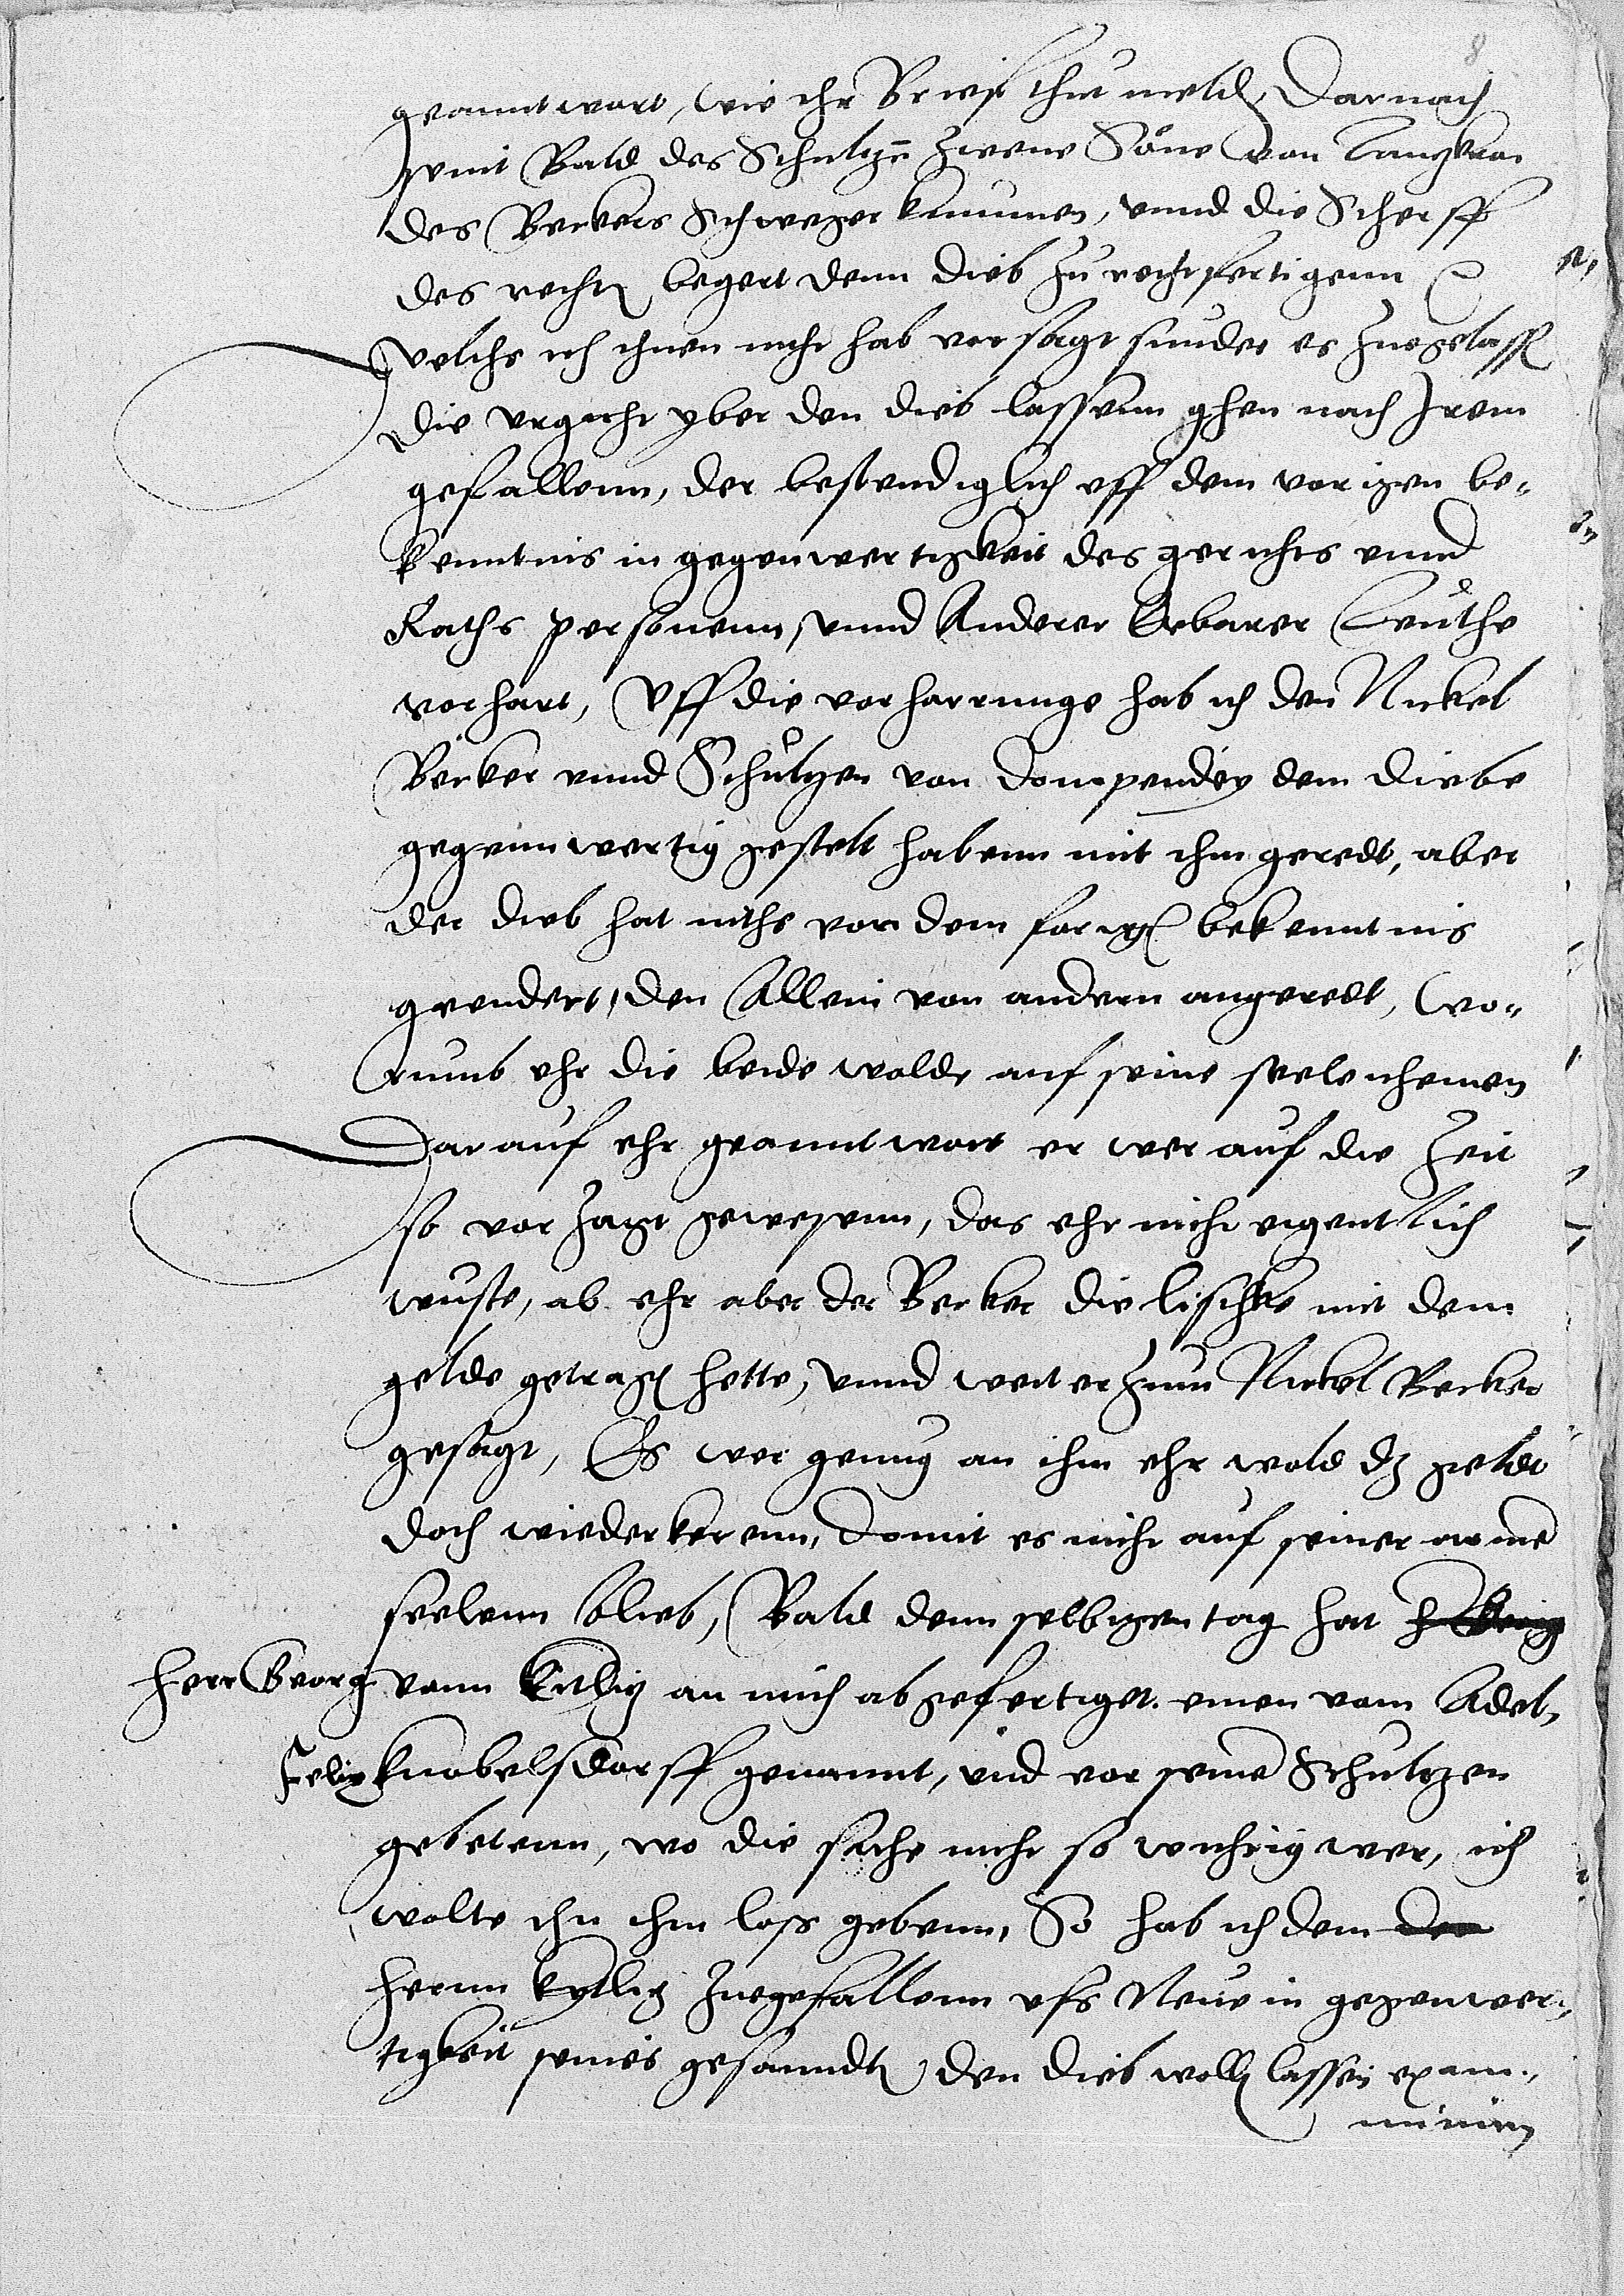 8
geanntwort, wie ihr Brief thut meld, Darnach
seint Bald des Schultzn zwene Söne von
des Beckers Schweger kummen, unnd die Scherff
des rechten begert denn dieb zu rechtfertigenn
welchs ich ihnen nicht hab vorsagt sunder es zugelassen
die urgicht yber den dieb lassenn ghen nach Irem
gefallenn, der bestendiglich uff dem vorigen be-
kenntnis in gegenwertigkeit des gerichts unnd
Raths personenn, unnd Anderer Erbarer Leuthe
vorhart, Uff die vorharrunge hab ich den Nickel
Becker unnd Schultzen von dem diebe
gegennwertig gestelt habenn mit ihm geredt, aber
der dieb hat nichs von dem forigen bekenntnis
geendert, den Allein von andern angeredt, wo-
rumb ehr die beide wolde auf seine seele nhemen
Darauf ehr geanntwort er wer auf die Zeit
so vorzagt gewesenn, das ehr nicht eigentlich
wuste, ab ehr aber der Becker die lischke mit dem
gelde getragen hette, unnd weiter zum Nickel Becker
gesagt, Es wer genug an ihm ehr wold dz geldt
doch wiederkerenn, domit es nicht auf seiner arme
seelenn blieb, Bald denn selbigen tag hat
Herr Georg vonn Kitlitz an mich abgefertiget einen vom Adel,
Felix Knobelsdorff genannt, und vor seine Schultzen
gebetenn, wo die sache nicht so wichtig wer, ich
wolte ihn ihm loss gebenn, So hab ich dem den
Hernn Kytlitz zugefallenn ufs Neue in gegenwer-
tigkeit seines gesanndten den dieb wollen lassen exam-
miniren